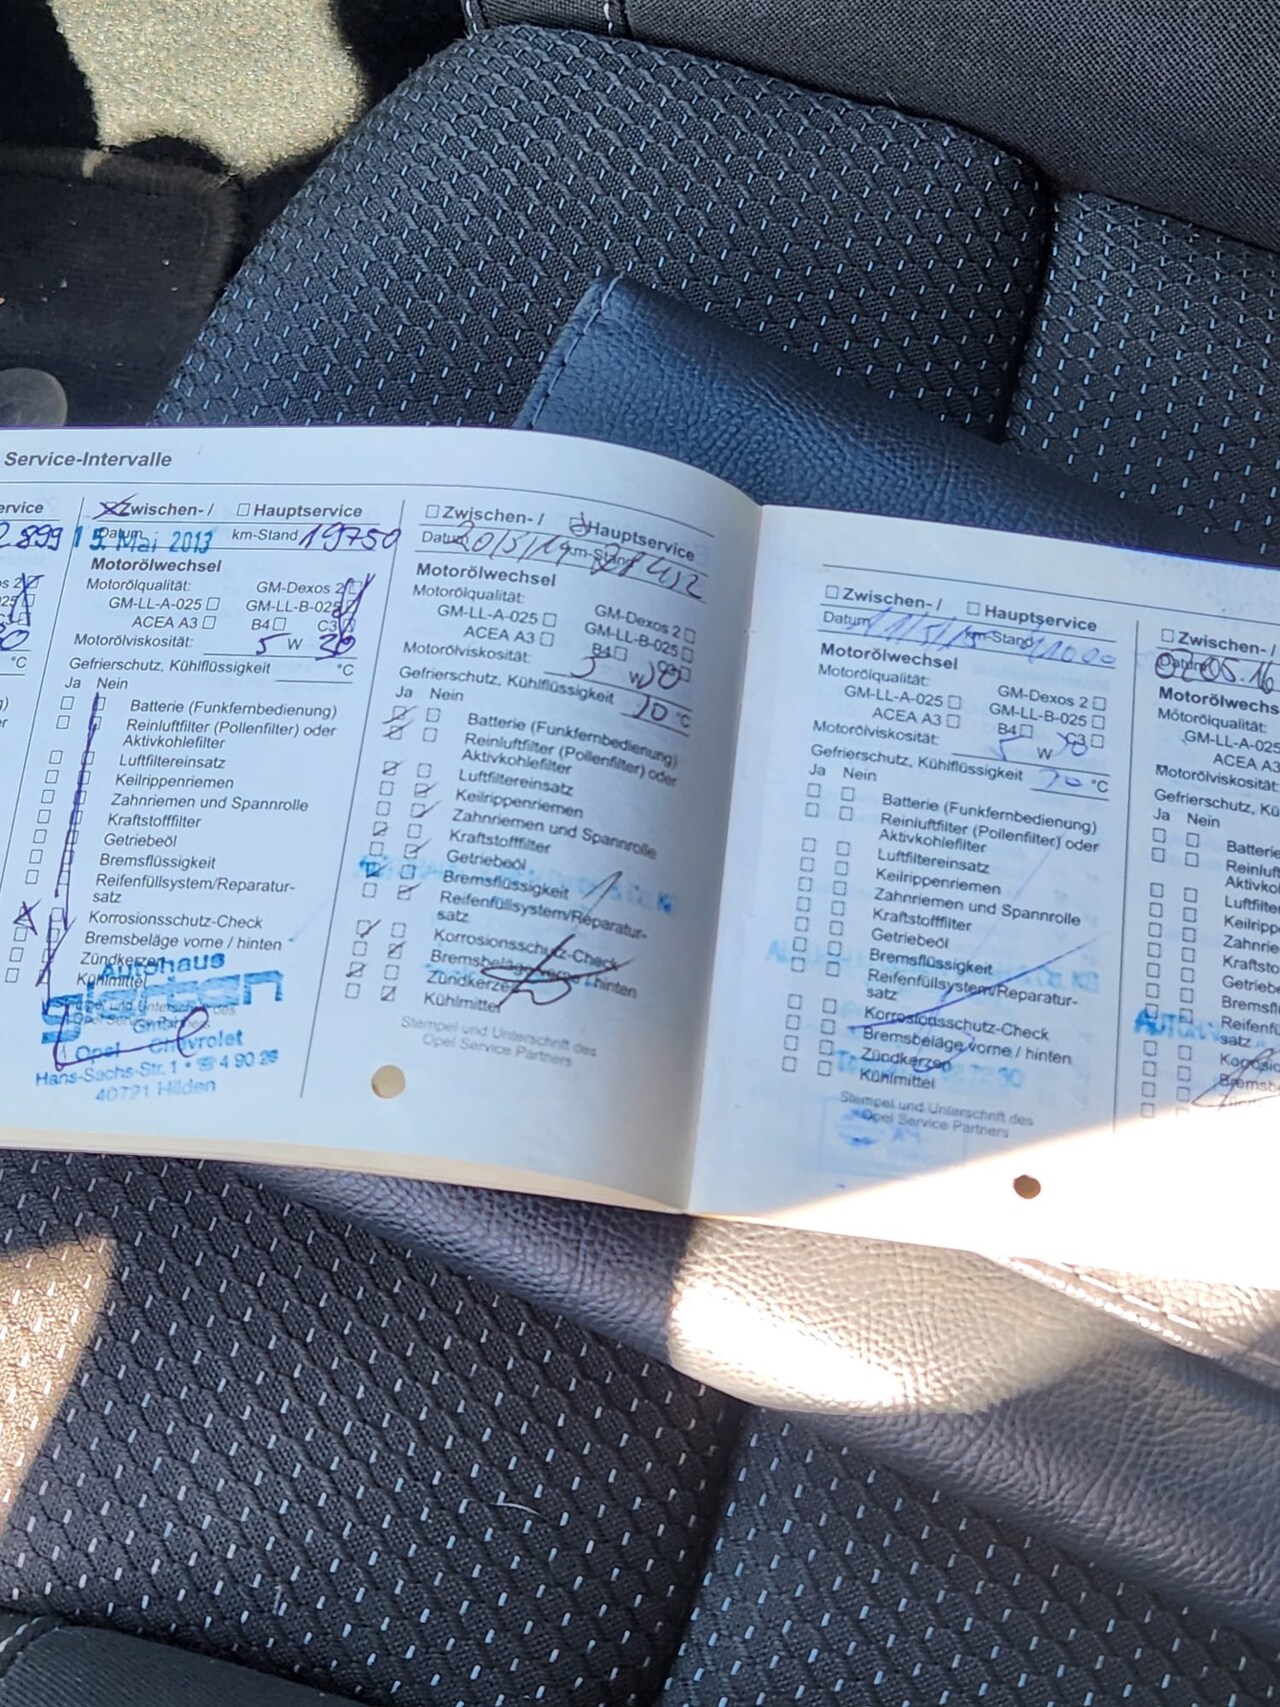 Service-Intervalle
ervice
2899
s 2
025
°C
Zwischen- / Hauptservice
Datum 15. Mai 2013 km-Stand 19750
Motorölwechsel
Motorölqualität: GM-Dexos 2
GM-LL-A-025 GM-LL-B-025
ACEA A3 B4 C3
Motorölviskosität: 5 W 30
Gefrierschutz, Kühlflüssigkeit °C
Ja Nein
Batterie (Funkfernbedienung)
Reinluftfilter (Pollenfilter) oder
Aktivkohlefilter
Luftfiltereinsatz
Keilrippenriemen
Zahnriemen und Spannrolle
Kraftstofffilter
Getriebeöl
Bremsflüssigkeit
Reifenfüllsystem/Reparatur-
satz
Korrosionsschutz-Check
Bremsbeläge vorne / hinten
Zündkerzen
Kühlmittel
Autohaus
GmbH
Opel - Chevrolet
Hans-Sachs-Str. 1 • ☎ 4 90 28
40721 Hilden
Zwischen- / Hauptservice
Datum km-Stand
Motorölwechsel
Motorölqualität: GM-Dexos 2
GM-LL-A-025 GM-LL-B-025
ACEA A3 B4 C3
Motorölviskosität: 5 W 30
Gefrierschutz, Kühlflüssigkeit °C
Ja Nein
Batterie (Funkfernbedienung)
Reinluftfilter (Pollenfilter) oder
Aktivkohlefilter
Luftfiltereinsatz
Keilrippenriemen
Zahnriemen und Spannrolle
Kraftstofffilter
Getriebeöl
Bremsflüssigkeit
Reifenfüllsystem/Reparatur-
satz
Korrosionsschutz-Check
Bremsbeläge vorne / hinten
Zündkerzen
Kühlmittel
Stempel und Unterschrift des
Opel Service Partners
Zwischen- / Hauptservice
Datum km-Stand
Motorölwechsel
Motorölqualität: GM-Dexos 2
GM-LL-A-025 GM-LL-B-025
ACEA A3 B4 C3
Motorölviskosität: 5 W 30
Gefrierschutz, Kühlflüssigkeit °C
Ja Nein
Batterie (Funkfernbedienung)
Reinluftfilter (Pollenfilter) oder
Aktivkohlefilter
Luftfiltereinsatz
Keilrippenriemen
Zahnriemen und Spannrolle
Kraftstofffilter
Getriebeöl
Bremsflüssigkeit
Reifenfüllsystem/Reparatur-
satz
Korrosionsschutz-Check
Bremsbeläge vorne / hinten
Zündkerzen
Kühlmittel
Stempel und Unterschrift des
Opel Service Partners
Zwischen- /
Datum 05.16
Motorölwechs
Motorölqualität:
GM-LL-A-025
ACEA A3
Motorölviskosität
Gefrierschutz, Kü
Ja Nein
Batterie
Reinluft
Aktivko
Luftfilter
Keilripp
Zahnrie
Kraftsto
Getriebe
Bremsfl
Reifenfü
satz
Korrosio
Bremsb